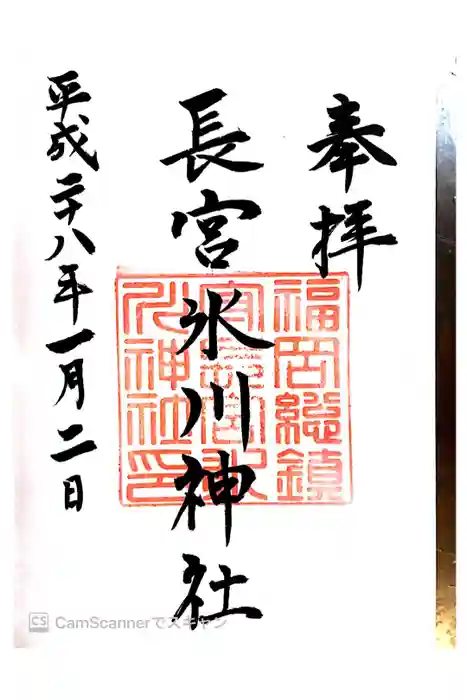 奉拝
長宮氷川神社
平成二十八年一月二日
福岡総鎮
守長宮氷
川神社印
CS CamScannerでスキャン